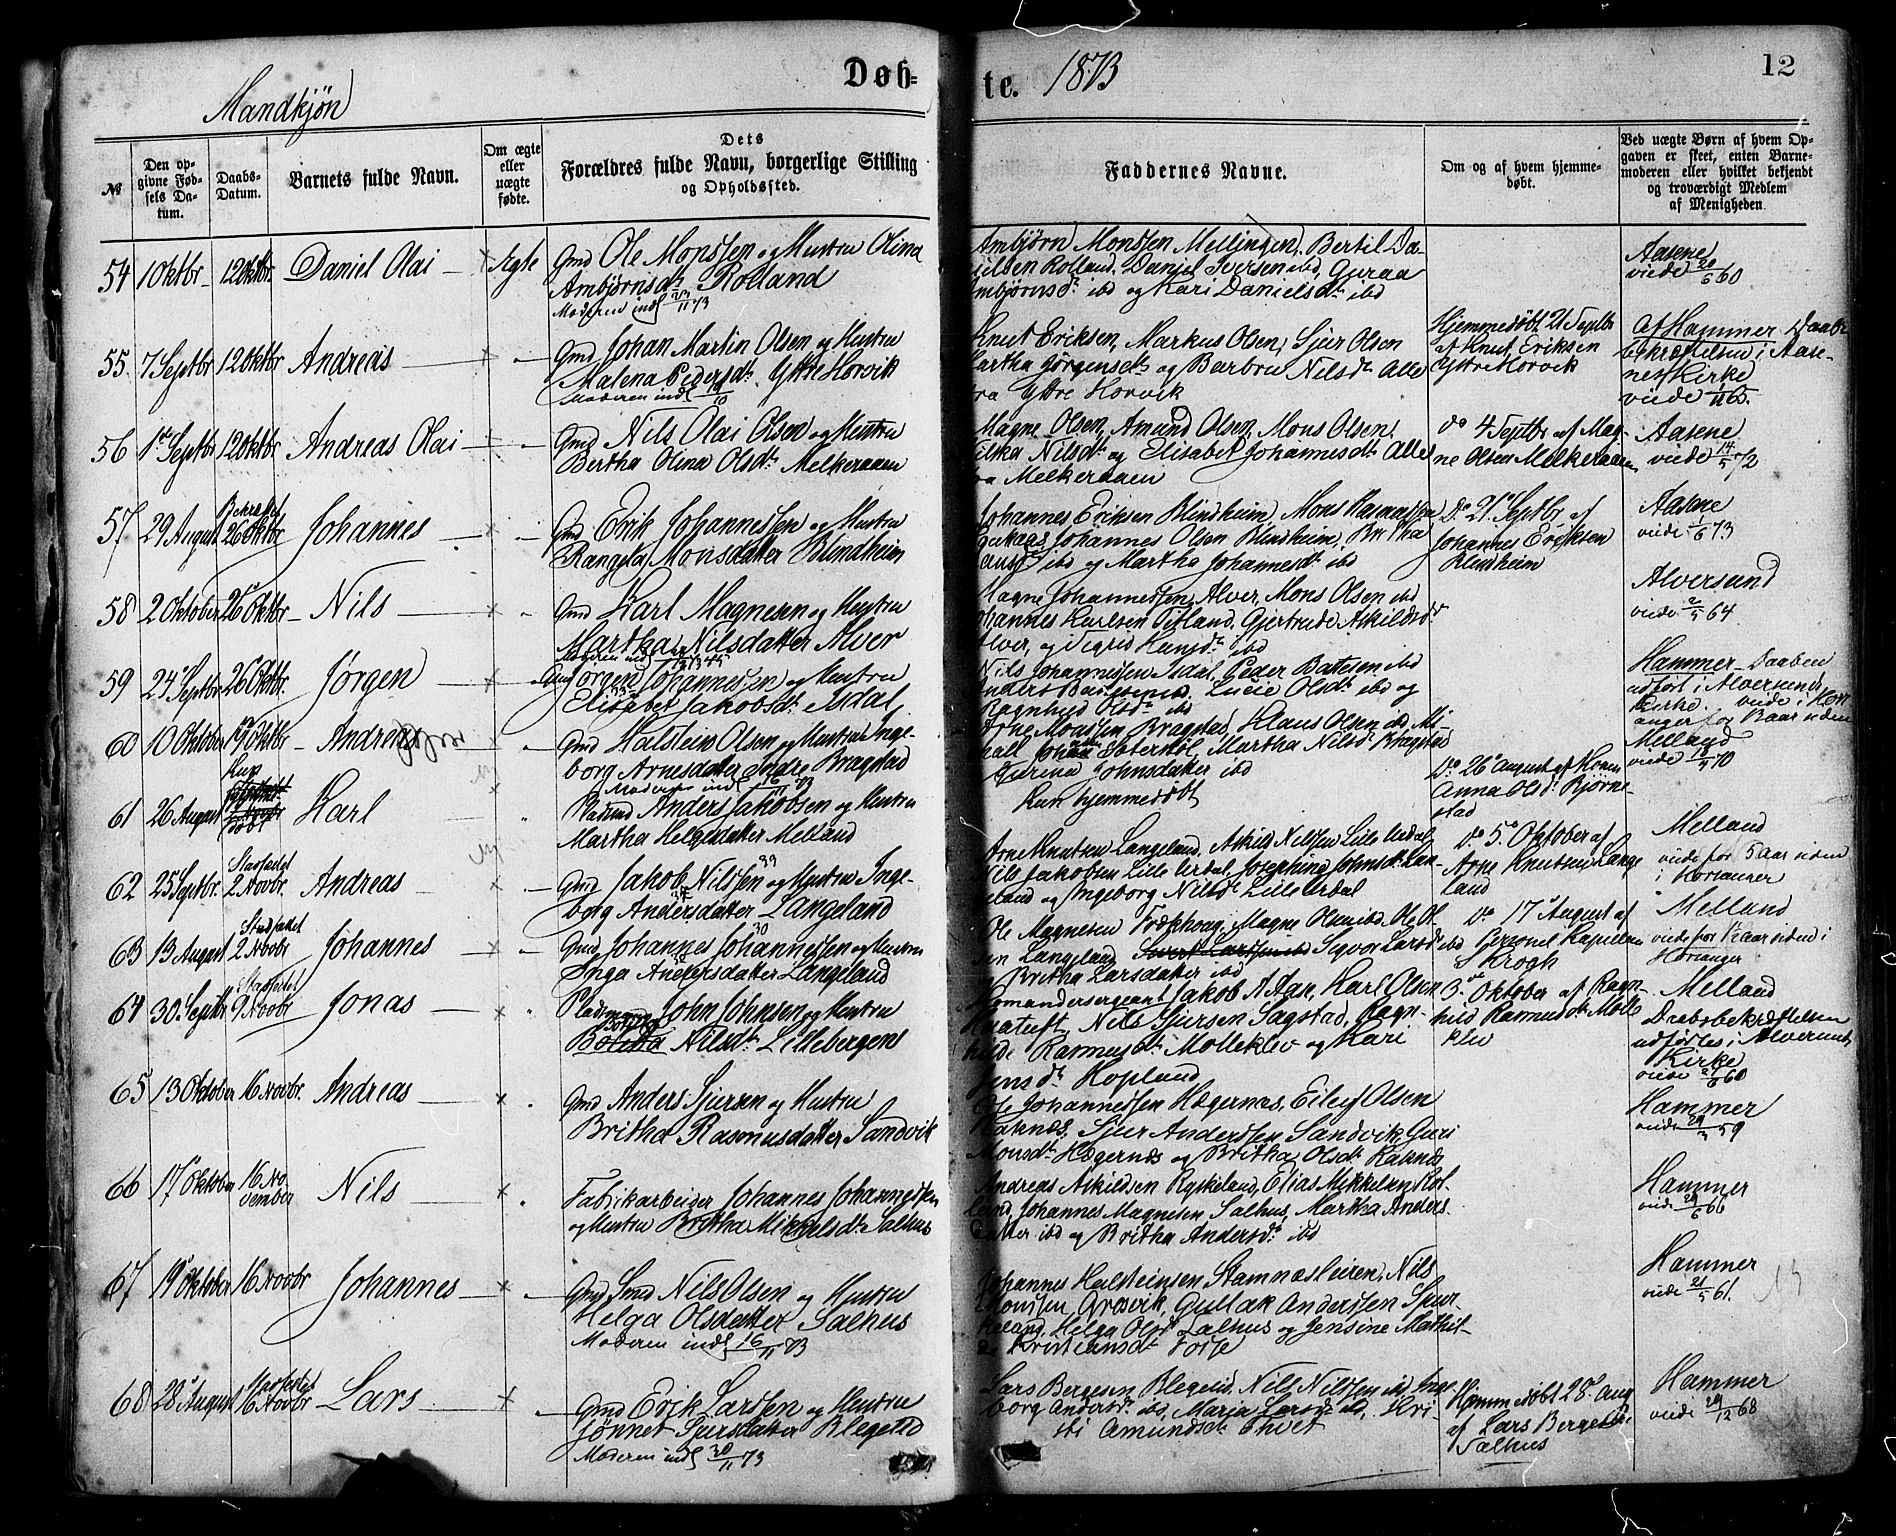 Mandkjøn
Døb-
te. 1873
12
№
Den opgivne Fødsels Datum.
Daabs-Datum.
Barnets fulde Navn.
Om ægte eller uægte fødte.
Dets Forældres fulde Navn, borgerlige Stilling og Opholdssted.
Faddernes Navne.
Om og af hvem hjemmedøbt.
Ved uægte Børn af hvem Opgaven er skeet, enten Barnemoderen eller hvilket bekjendt og troværdigt Medlem af Menigheden.
54 1 Oktbr 12 Oktbr Daniel Olai Ægte Gmd Ole Monssen og Hustru Olina
Ambjørnsdt Rolland
Moderen indl 23/11 73
Ambjørn Monssen Mellingen, Bertil Da-
nielsen Rolland, Daniel Iversen ibd, Guraa
Ambjørnsdt ibd og Kari Danielsdt ibd
Aasene
viede 20/6 60
55. 7 Septbr 12 Oktbr Andreas Gmd Johan Martin Olsen og Hustru
Malena Pedersdt. Yttre Horvik
Moderen indl
Knut Eriksen, Markus Olsen, Sjur Olsen
Martha Jørgensdt og Barbru Nilsdt Alle
fra Yttre Horvik
Hjemmedøbt 21 Septbr
af Knut Eriksen
Yttre Horvik
Af Hammer Daabs
bekræftelsen i Aase-
nes Kirke
56 1ste Septbr 12 Oktbr Andreas Olai Gmd Nils Olai Olsen og Hustru
Bertha Olina Olsdt. Melkeraaen
Magne Olsen, Amund Olsen, Mons Olsen,
Nilsdt og Elisabet Johannesdt Alle
fra Melkeraaen
do 4 Septbr af Mag-
ne Olsen Melkeraaen
Aasene
viede 14/5 72
57 29 August 26 Oktbr Johannes Gmd Erik Johannessen og Hustru
Rangela Monsdatter Blindheim
Johannes Eriksen Blindheim, Mons Rasmussen
Johannes Olsen Blindheim, Britha
ibd og Martha Johannesdt ibd
Do 21 Septbr af
Johannes Eriksen
Blindheim
Aasene
viede 1/6 73
58 2 Oktober 26 Oktbr Nils Gmd Karl Magnesen og Hustru
Martha Nilsdatter Alver
Magne Johannessen Alver, Mons Olsen ibd
Johannes Karlsen Titland, Gjertrude Askildsdt
Alver, og Sigrid Hansdt ibd
Alversund
viede 2/5 64
59 24 Septbr 26 Oktbr. Jørgen Gmd Jørgen Johannessen og Hustru
Elisabet Jakobsdt. Isdal
Nils Johannessen Isdal, Peder Batesen ibd
Lucie Olsdt ibd og
Ragnhild Olsdt ibd
Hammer Daaben
udført i Alversunds
Kirke. viede i Hou-
60 10 Oktober 19 Oktbr Andreas Gmd Halstein Olsen og Hustru Inge-
borg Arnesdatter Indre Bragstad
Moderen indl
Arne Monssen Bragstad, Klaus Olsen ibd, Mi-
kall Martha Nilsdt Bragstad
Gurina Johnsdatter ibd
anger for Baar siden
Melland
viede 70
61 26 August Karl Pladsmd Anders Jakobsen og Hustru
Martha Helgesdatter Melland
Kun hjemmedøbt
Do 26 August af Konen
Anna Olsdt Bjørne-
stad
62 25 Septbr. Stadfæstet 2 Novbr. Andreas Gmd Jakob Nilssen og Hustru Inge-
borg Andersdatter Langeland
Arne Knutsen Langeland, Askild Nilssen Lille Urdal
Nils Jakobsen Lille Urdal, Josephina Johnsdt Lan-
geland og Ingeborg Nilsdt Lille Urdal
do 5. Oktober af
Arne Knutsen Lange
land
Melland
viede for 5 Aar siden
i Horianger
63 13 August 2 Novbr Johannes Gmd Johannes Johannessen og Hustru
Inga Andersdatter Langeland
Ole Magnesen Trækhaug, Magne Olsen ibd, Ole Ol-
sen Langeland Sivert Larssen ibd Sigvor Larsdt ibd
Britha Larsdatter ibd
do 17 August af
Personel Kapellan
Krogh
Melland
viede for 1 1/2 Aar siden i
Horianger
64 30. Septbr Stadfæstet 9 Novbr Jonas Pladsmann John Johnsen og Hustru
Nilsdt. Lillebergen
Kommandersergeant Jakob A Aase, Karl Olsen
Nils Sjursen Sagstad, Ragn-
hilde Rasmusdt. Molleklev og Kari
Jensdt Hopland
3. Oktober af Ragn-
hild Rasmusdt Molle
klev
Melland
Daabsbekræftelsen
udførtes i Alversund
Kirke
viede 60
65 13 Oktober 16 Novbr. Andreas Gmd Anders Sjursen og Hustru
Britha Rasmusdatter Sandvik
Ole Johannessen Hægernæs, Eilef Olsen
Raknæs, Sjur Anderssen Sandvik, Guri
Monsdt. Hægernæs og Britha Olsdt. Raknæs
Hammer
viede 59
66 17 Oktober 16 November Nils Fabrikarbeider Johannes Johannessen
og Hustru Britha Mikkelsdt Salhus
Andreas Askildsen Ryskeland, Elias Mikkelsen Rol-
land, Johannes Magnesen Salhus, Martha Anders
datter ibd og Britha Andersdt. ibd
Hammer
viede 66
67 19 Oktober 16 Novbr Johannes Gmd Smd Nils Olsen og Hustru
Helga Olsdatter Salhus
Moderen indl 16/11 73
Johannes Halsteinsen Stamnæsleiren, Nils
Monssen Grøsvik, Gullak Anderssen Spur-
keland, Helga Olsdt Salhus og Jensine Mathil-
de Kristiansdt Tofte
Hammer
viede 21/5 61.
68 28 August Stadfæstet 16 Novbr Lars Gmd Erik Larssen og Hustru
Jønnet Sjursdatter Blegelid
Moderen indl 30/11 73
Lars Bergesen Blegelid, Nils Nilssen ibd, Inge-
borg Andersdt. ibd, Maria Larsdt ibd, Kri-
sti Amundsdt Thvet
Hjemmedøbt 28. Aug
af Lars Bergesen
Salhus
Hammer
viede 29/12 68